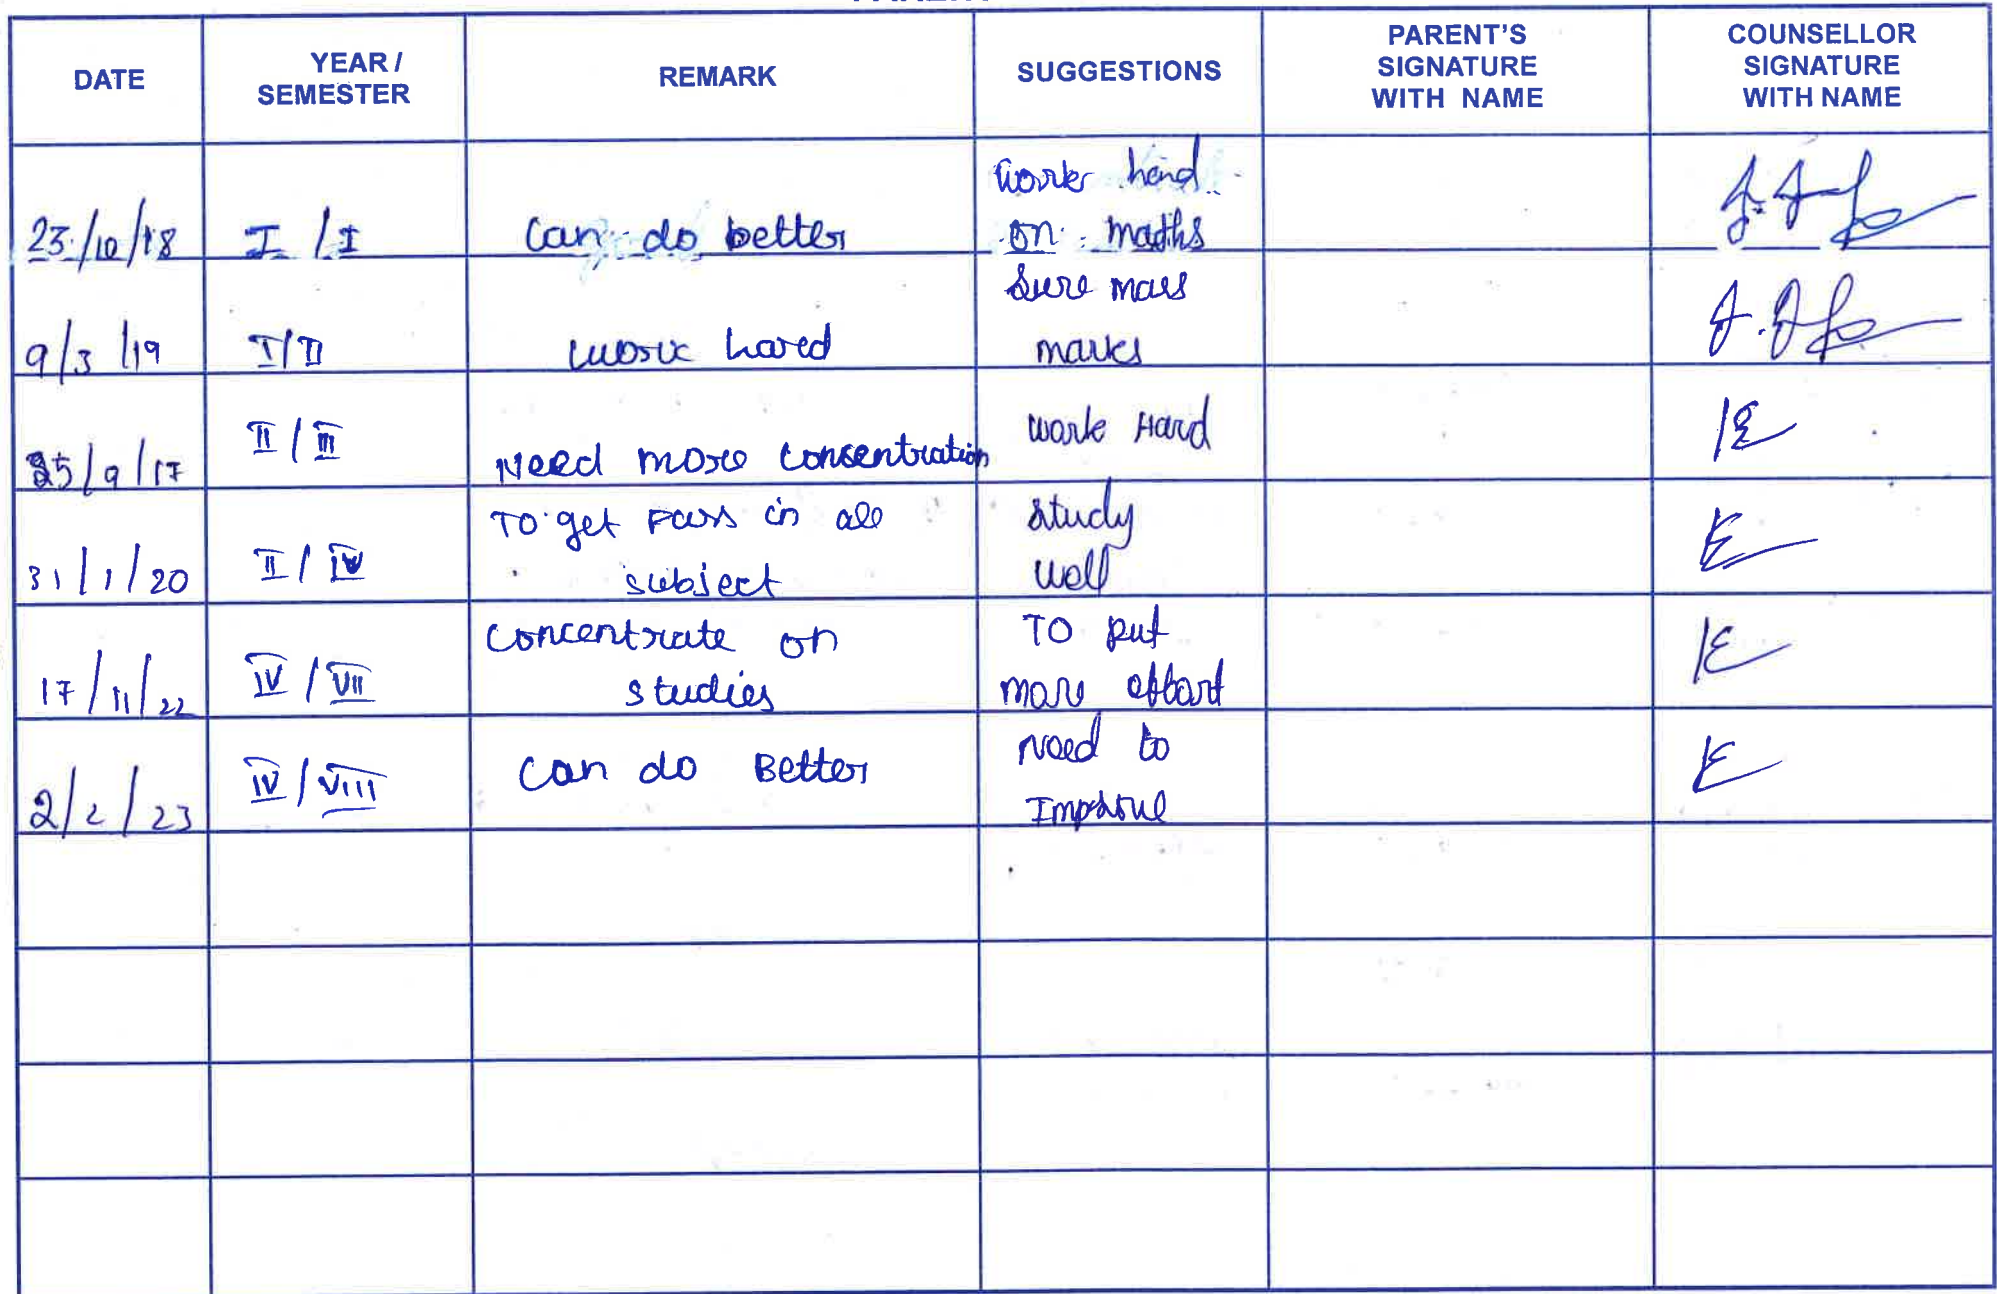 DATE
YEAR /
SEMESTER
REMARK
SUGGESTIONS
PARENT'S
SIGNATURE
WITH NAME
COUNSELLOR
SIGNATURE
WITH NAME
23/10/18
I / I
Can do better
work hard
on maths
9/3/19
I/II
work hard
Sure
marks
25/9/17
II / III
Need more Concentration
work Hard
31/1/20
II / IV
To get Pass in all
subject
Study
well
17/11/22
IV / VII
Concentrate on
studies
TO put
more effort
2/2/23
IV / VIII
Can do Better
Need to
Improve